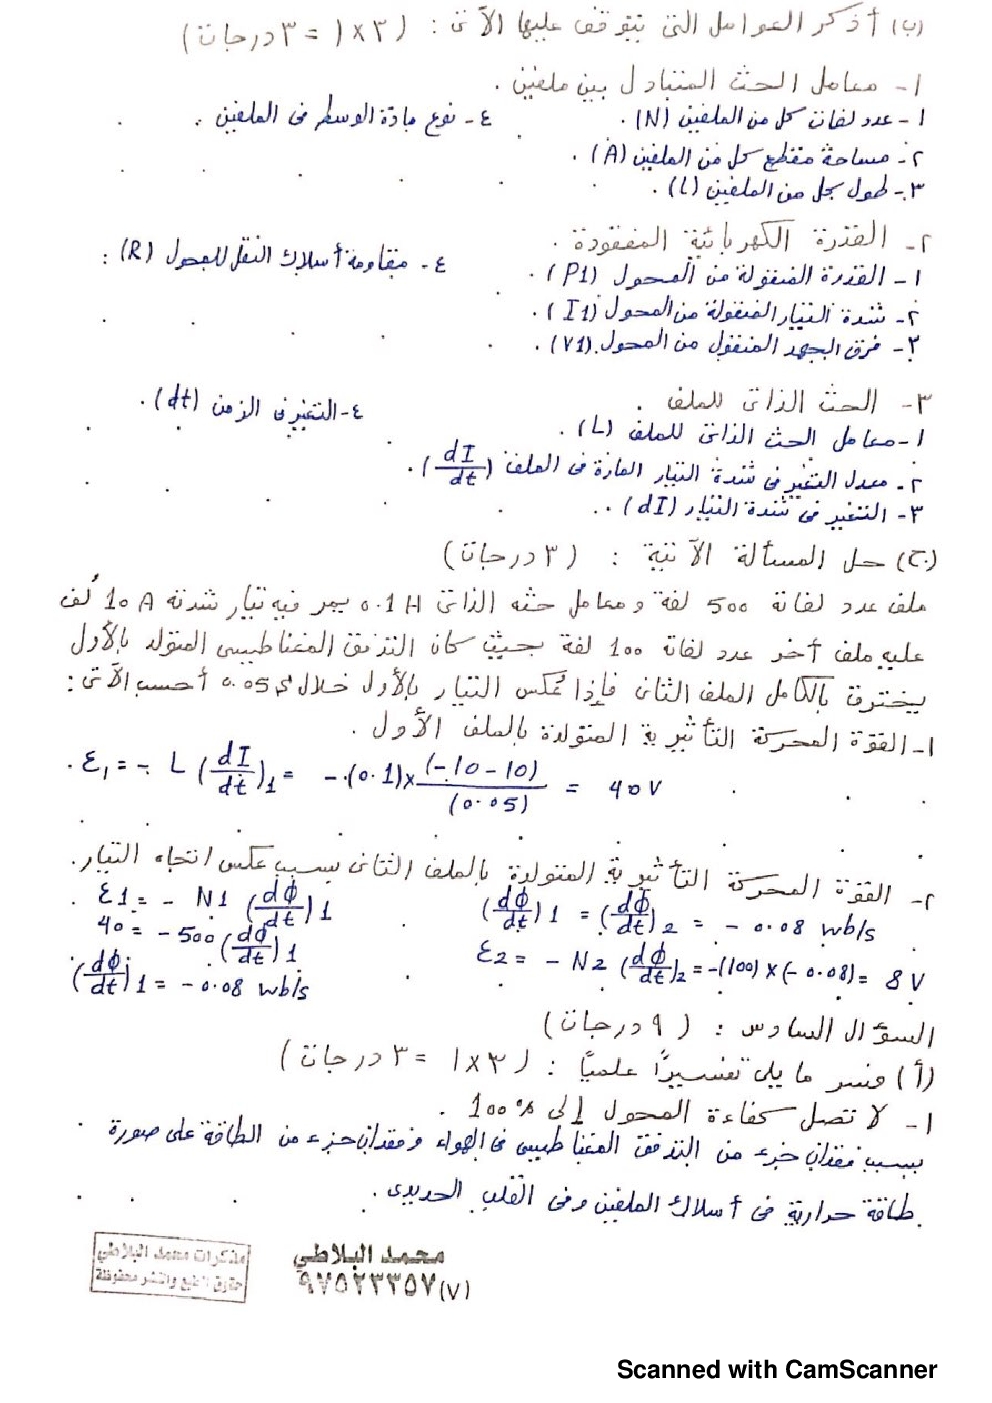 (ب) أذكر العوامل التى يتوقف عليها الآتى : (٣ × ١ = ٣ درجات)
١- معامل الحث المتبادل بين ملفين .
١- عدد لفات كل من الملفين (N) .
٢- مساحة مقطع كل من الملفين (A) .
٣- طول كل من الملفين (L) .
٤- نوع مادة الوسط فى الملفين .
٢- القدرة الكهربائية المفقودة .
١- القدرة المنقولة من المحول (P1) .
٢- شدة التيار المنقولة من المحول (I1) .
٣- فرق الجهد المنقول من المحول (V1) .
٤- مقاومة أسلاك النقل للمحول (R) .
٣- الحث الذاتى للملف .
١- معامل الحث الذاتى للملف (L) .
٢- معدل التغير فى شدة التيار المارة فى الملف (dI/dt) .
٣- التغير فى شدة التيار (dI) .
٤- التغير فى الزمن (dt) .
(ج) حل المسألة الآتية : (٣ درجات)
ملف عدد لفاته 500 لفة ومعامل حثه الذاتى 0.1 H يمر فيه تيار شدته 10 A لُف
عليه ملف أخر عدد لفاته 100 لفة بحيث كان التدفق المغناطيسى المتولد بالأول
يخترق بالكامل الملف الثانى فإذا عُكس التيار بالأول خلال 0.05 s أحسب الآتى :
١- القوة المحركة التأثيرية المتولدة بالملف الأول .
ε1 = - L (dI/dt)1 = -(0.1) × (-10-10)/(0.05) = 40 V
٢- القوة المحركة التأثيرية المتولدة بالملف الثانى بسبب عكس اتجاه التيار .
ε1 = - N1 (dΦ/dt)1
40 = - 500 (dΦ/dt)1
(dΦ/dt)1 = - 0.08 wb/s
(dΦ/dt)1 = (dΦ/dt)2 = - 0.08 wb/s
ε2 = - N2 (dΦ/dt)2 = -(100) × (- 0.08) = 8 V
السؤال السادس : (٩ درجات)
(أ) فسر ما يلى تفسيرًا علميًا : (٣ × ١ = ٣ درجات)
١- لا تصل كفاءة المحول إلى 100% .
بسبب فقدان جزء من التدفق المغناطيسى فى الهواء وفقدان جزء من الطاقة على صورة
طاقة حرارية فى أسلاك الملفين وفى القلب الحديدى .
مذكرات محمد البلاطي
حقوق الطبع والنشر محفوظة
محمد البلاطي
٩٧٥٢٣٣٥٧
(٧)
Scanned with CamScanner